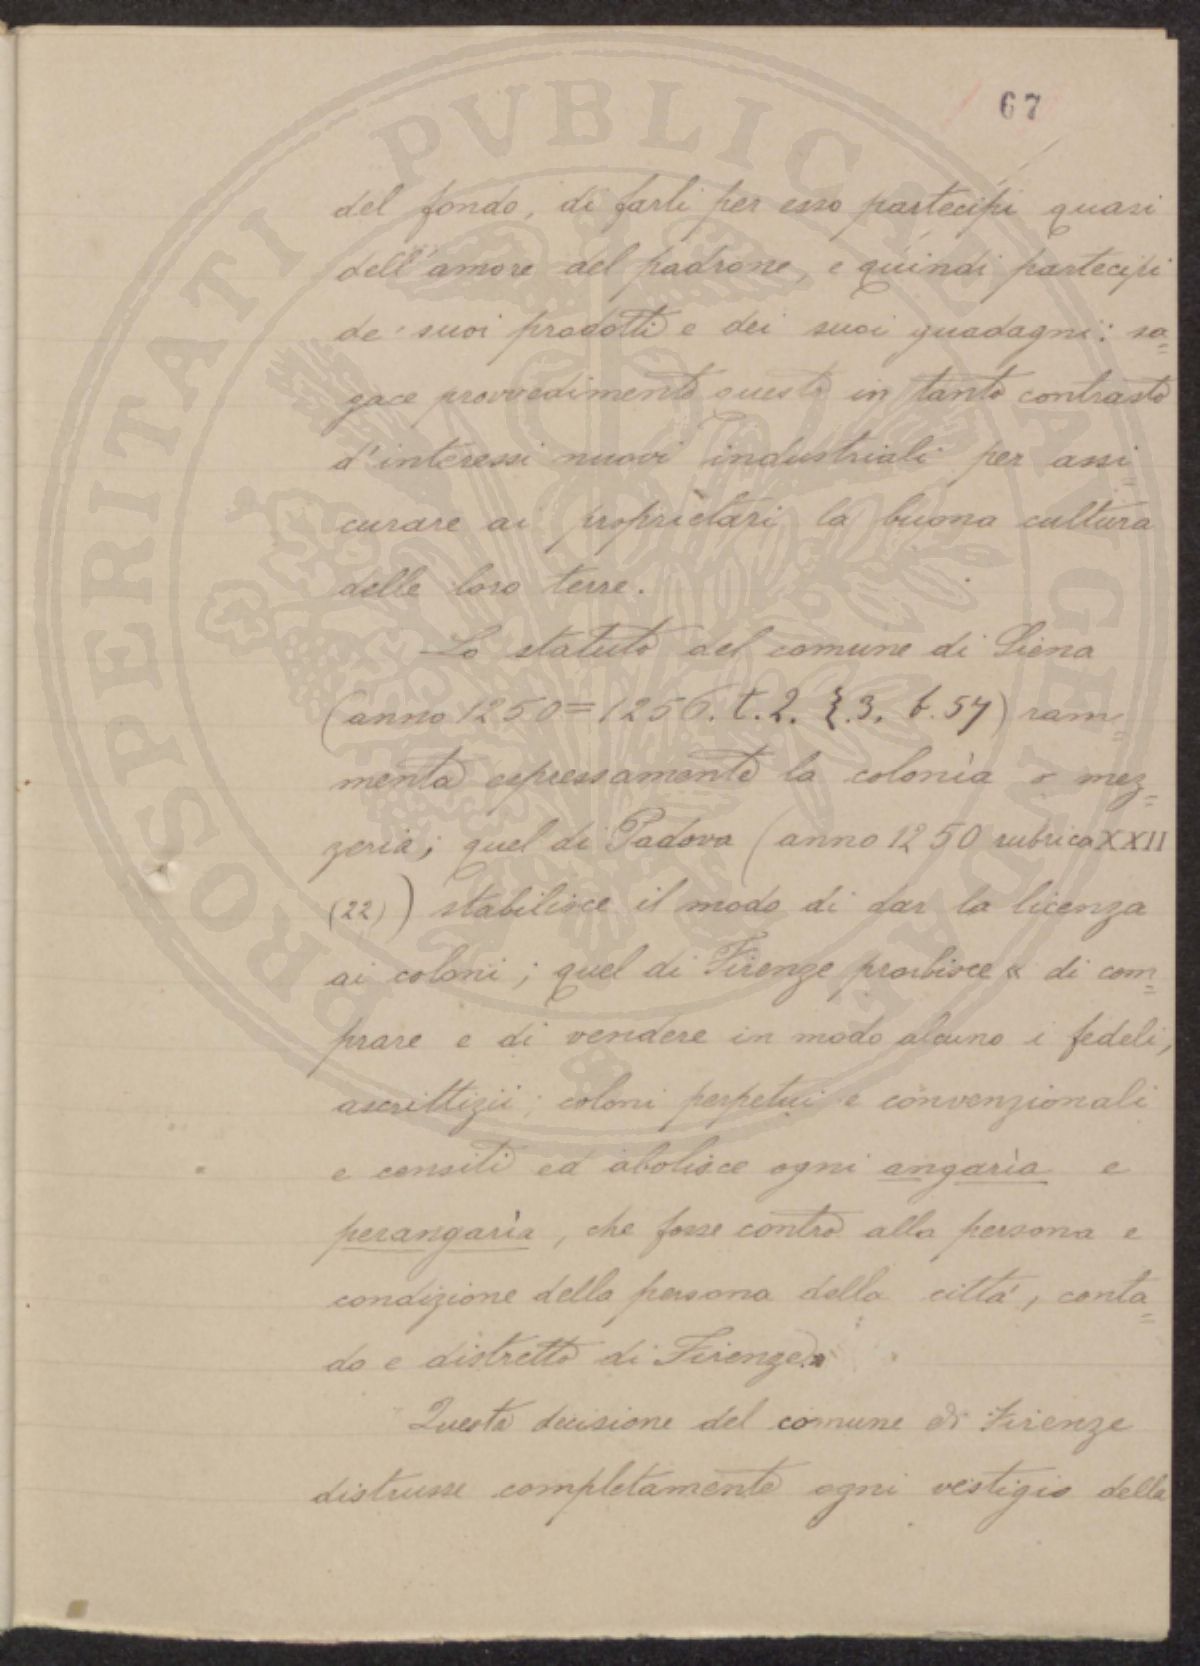 67
PROSPERITATI PVBLICAE AVGENDAE
del fondo, di farli per esso partecipi quasi
dell'amore del padrone, e quindi partecipi
de' suoi prodotti e dei suoi guadagni: sa=
gace provvedimento questo in tanto contrasto
d'interessi nuovi industriali per assi=
curare ai proprietari la buona cultura
delle loro terre.
Lo statuto del comune di Siena
(anno 1250=1256. t. 2. §. 3. f. 54) ram=
menta espressamente la colonìa o mez=
zeria; quel di Padova (anno 1250 rubrica XXII
(22)) stabilisce il modo di dar la licenza
ai coloni; quel di Firenze proibisce « di com=
prare e di vendere in modo alcuno i fedeli,
ascrittizii; coloni perpetui e convenzionali
e censiti ed abolisce ogni angarìa e
perangarìa, che fosse contro alla persona e
condizione della persona della città, conta=
do e distretto di Firenze.»
Questa decisione del comune di Firenze
distrusse completamente ogni vestigio della